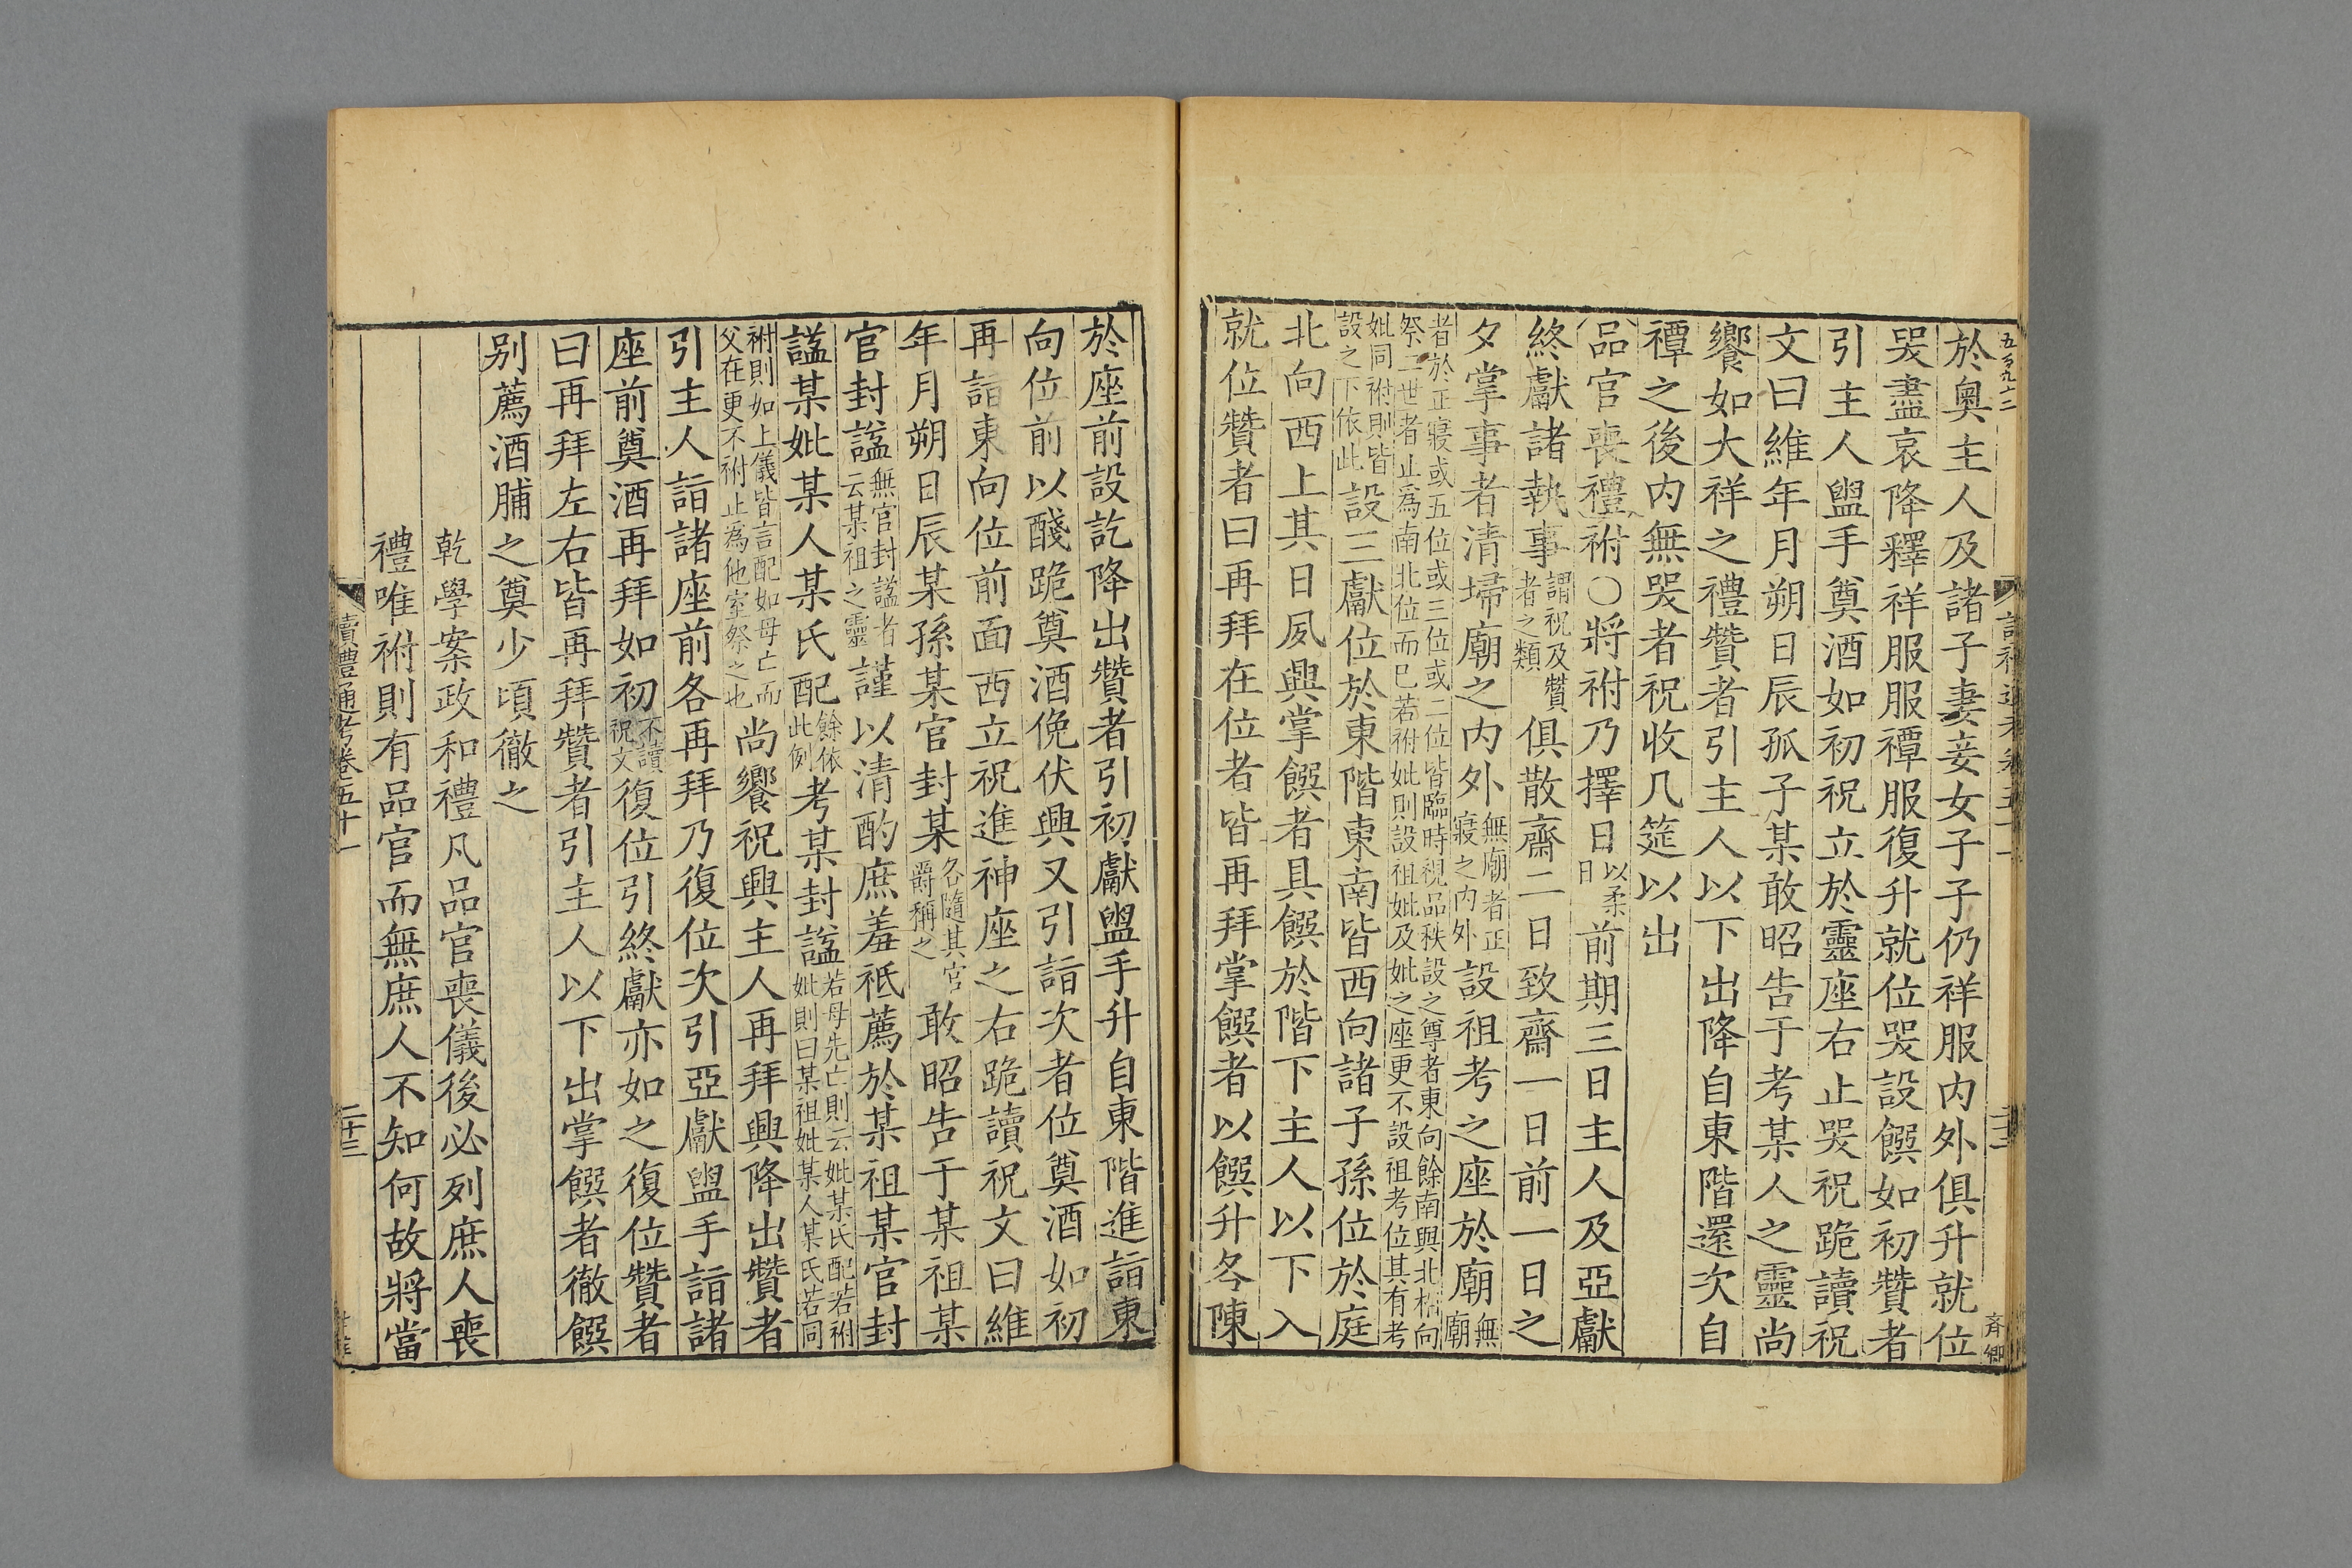 於奧主人及諸子妻妾女子子仍祥服内外俱升就位
哭盡哀降釋祥服服禫服復升就位哭設饌如初贊者
引主人盥手奠酒如初祝立於靈座右止哭祝跪讀祝
文曰維年月朔日辰孤子某敢昭告于考某人之靈尚
饗如大祥之禮贊者引主人以下出降自東階還次自
禫之後内無哭者祝收几筵以出
品官喪禮祔○將祔乃擇日以柔日前期三日主人及亞獻
終獻諸執事謂祝及贊者之類俱散齋二日致齋一日前一日之
夕掌事者清埽廟之内外無廟者正寢之内外設祖考之座於廟無廟
者於正寢或五位或三位或二位皆臨時視品秩設之尊者東向餘南興北相向
祭二世者止為南北位而巳若祔妣則設祖妣及妣之座更不設祖考位其有考
妣同祔則皆設之下依此設三獻位於東階東南皆西向諸子孫位於庭
北向西上其日夙興掌饌者具饌於階下主人以下入
就位贊者曰再拜在位者皆再拜掌饌者以饌升各陳
於座前設訖降出贊者引初獻盥手升自東階進詣東
向位前以醆跪奠酒俛伏興又引詣次者位奠酒如初
再詣東向位前面西立祝進神座之右跪讀祝文曰維
年月朔日辰某孫某官封某各隨其官爵稱之敢昭告于某祖某
官封諡無官封諡者云某祖之靈謹以清酌庶羞祗薦於某祖某官封
諡某妣某人某氏配餘依此例考某封諡若母先亡則云妣某氏配若祔妣則曰某祖妣某人某氏若同
祔則如上儀皆言配如母亡而父在更不祔止爲他室祭之也尚饗祝興主人再拜興降出贊者
引主人詣諸座前各再拜乃復位次引亞獻盥手詣諸
座前奠酒再拜如初不讀祝文復位引終獻亦如之復位贊者
曰再拜左右皆再拜贊者引主人以下出掌饌者徹饌
别薦酒脯之奠少頃徹之
乾學案政和禮凡品官喪儀後必列庶人喪
禮唯祔則有品官而無庶人不知何故將當
讀禮通考卷五十一
二十三